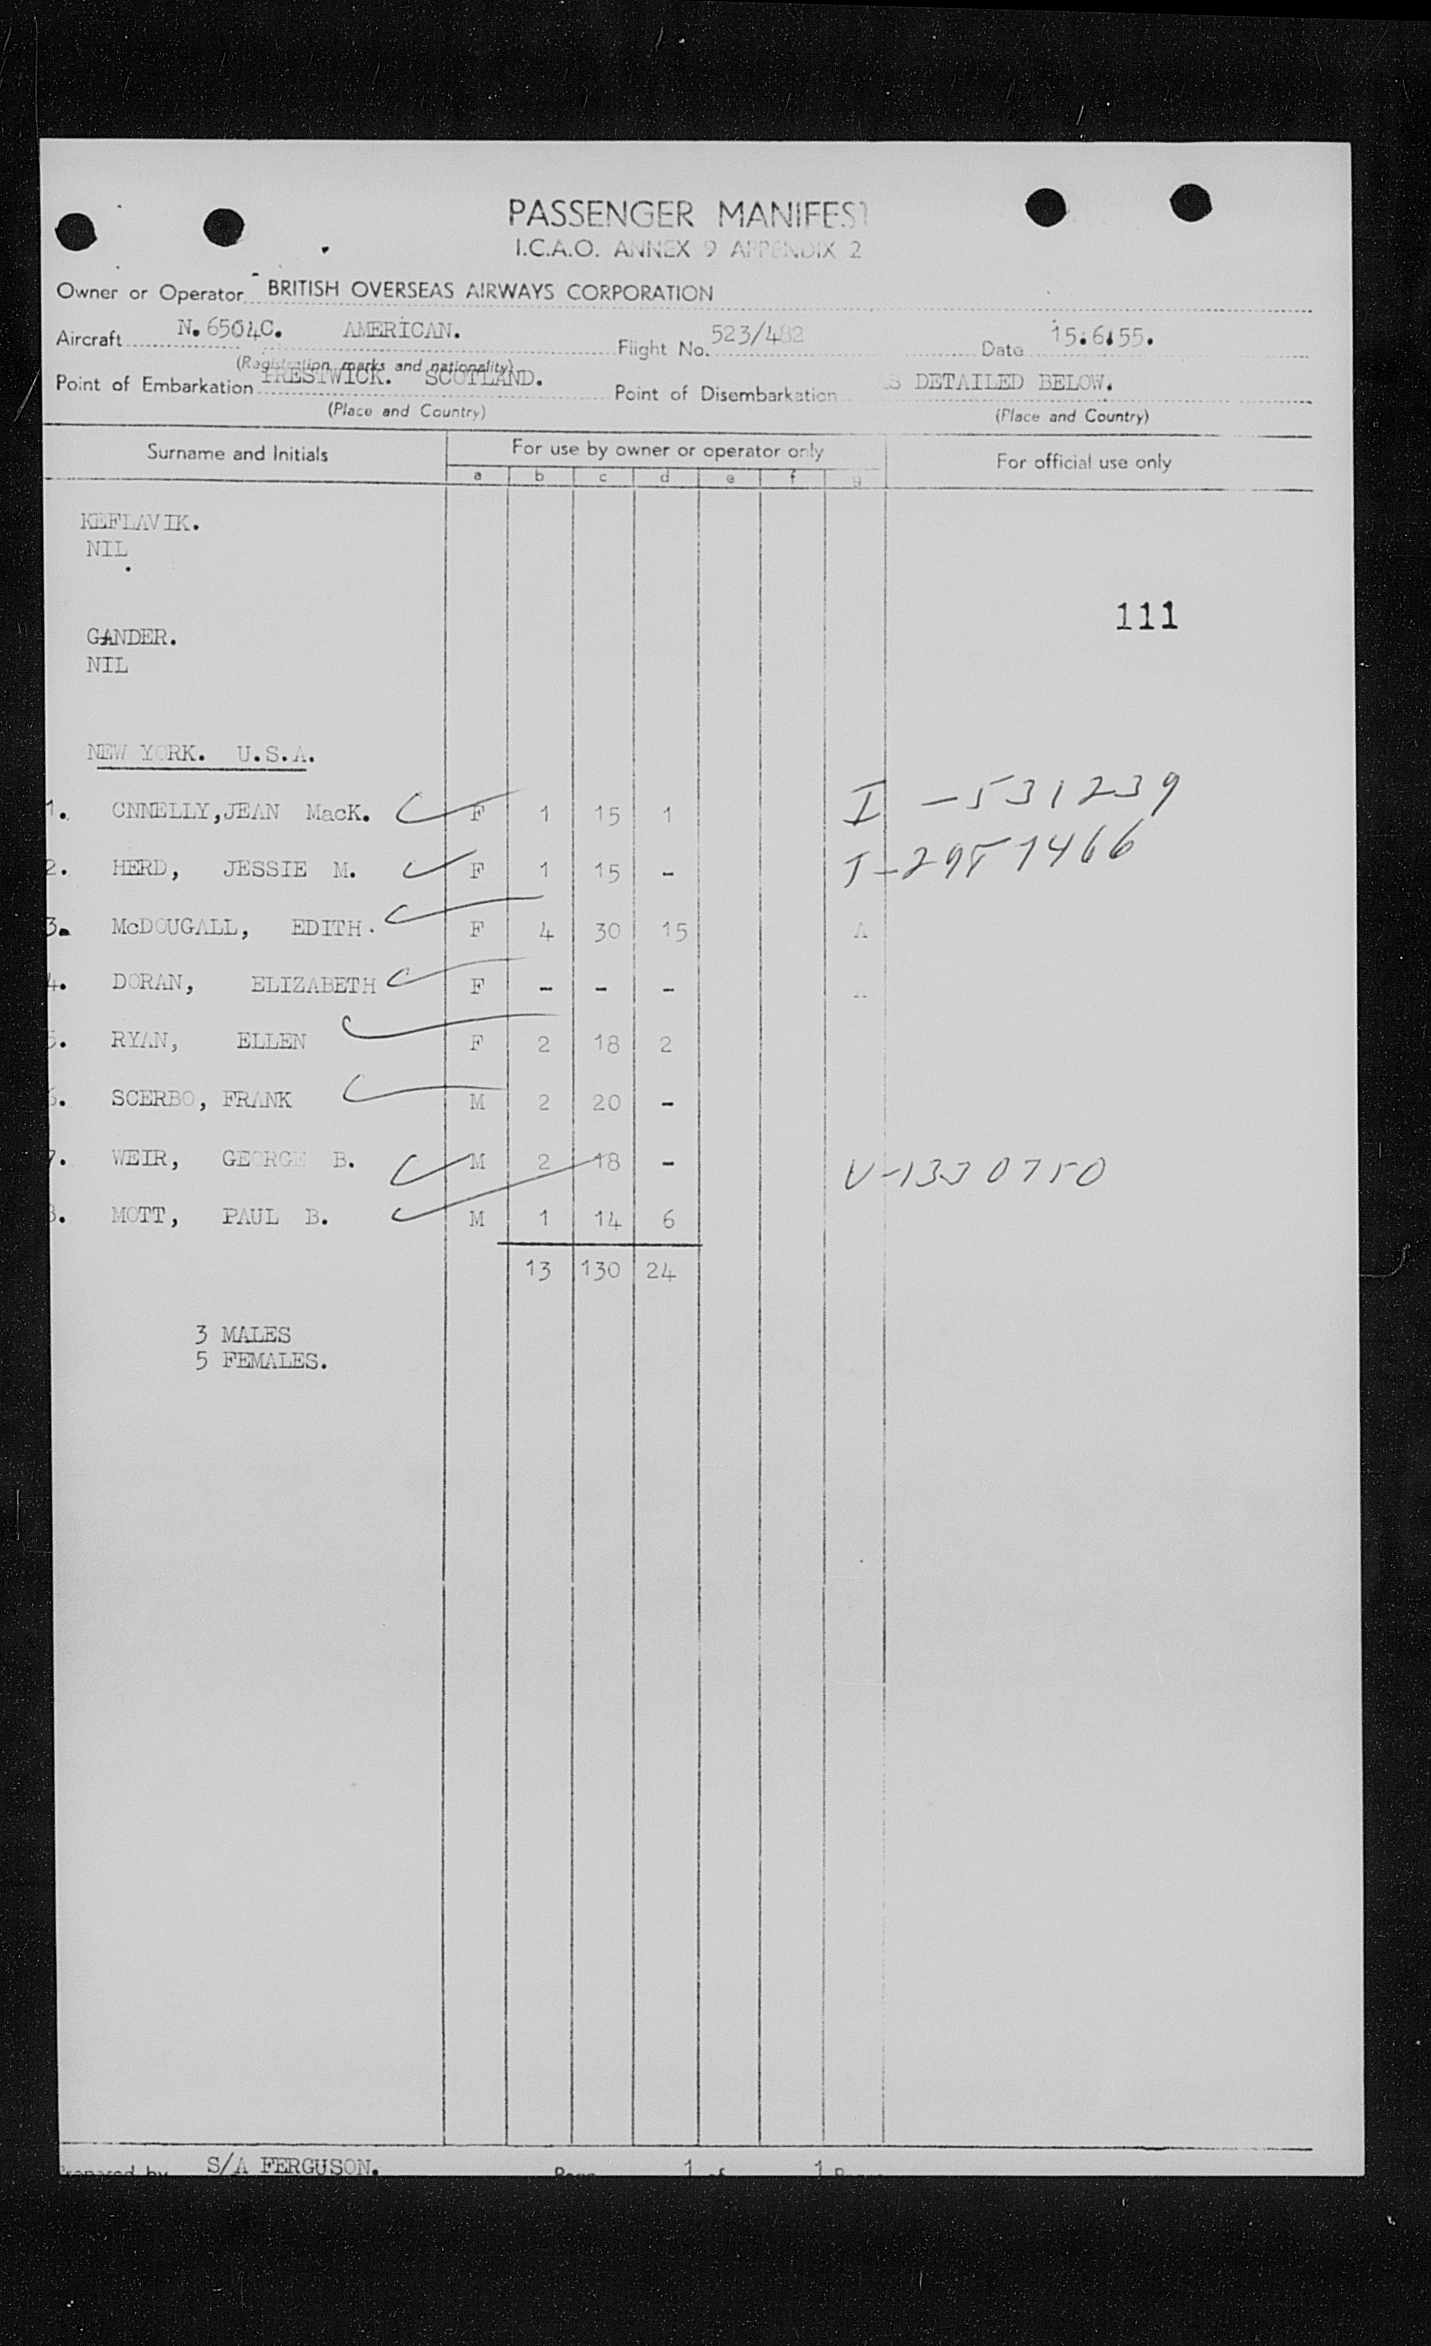 PASSENGER MANIFEST
I.C.A.O. ANNEX 9 APPENDIX 2
Owner or Operator BRITISH OVERSEAS AIRWAYS CORPORATION
Aircraft N.6504C. AMERICAN. Flight No. 523/482 Date 15.6.55.
(Registration marks and nationality)
Point of Embarkation PRESTWICK. SCOTLAND. Point of Disembarkation AS DETAILED BELOW.
(Place and Country) (Place and Country)
Surname and Initials For use by owner or operator only For official use only
a b c d e f g
KEFLAVIK.
NIL
111
GANDER.
NIL
NEW YORK. U.S.A.
1. CNNELLY,JEAN MacK. F 1 15 1 I -531239
2. HERD, JESSIE M. F 1 15 -
3. McDOUGALL, EDITH. F 4 30 15 A
4. DORAN, ELIZABETH F - - -
5. RYAN, ELLEN F 2 18 2
6. SCERBO, FRANK M 2 20 -
7. WEIR, GEORGE B. M 2 18 - V-1330750
8. MOTT, PAUL B. M 1 14 6
13 130 24
3 MALES
5 FEMALES.
Prepared by S/A FERGUSON. Page 1 of 1 Pages